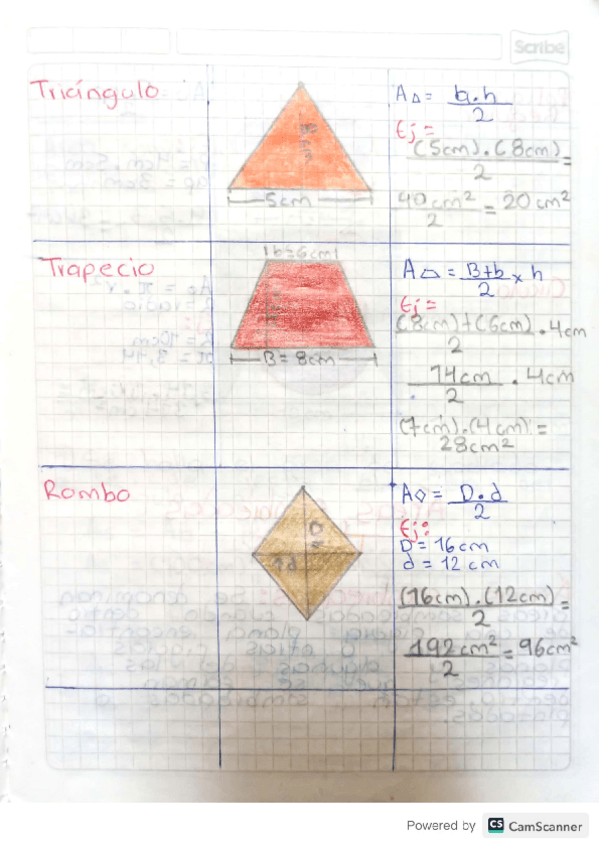 Scribe
Triángulo
5cm
A△ = b.h
2
Ej =
(5cm).(8cm) =
2
40cm² = 20cm²
2
Trapecio
b=6cm
B = 8cm
A⏢ = B+b x h
2
Ej =
(8cm)+(6cm) . 4cm
2
14cm . 4cm
2
(7cm).(4cm) =
28cm²
Rombo
D
d
A◇ = D.d
2
Ej:
D = 16cm
d = 12 cm
(16cm).(12cm) =
2
192cm² = 96cm²
2
Powered by CS CamScanner